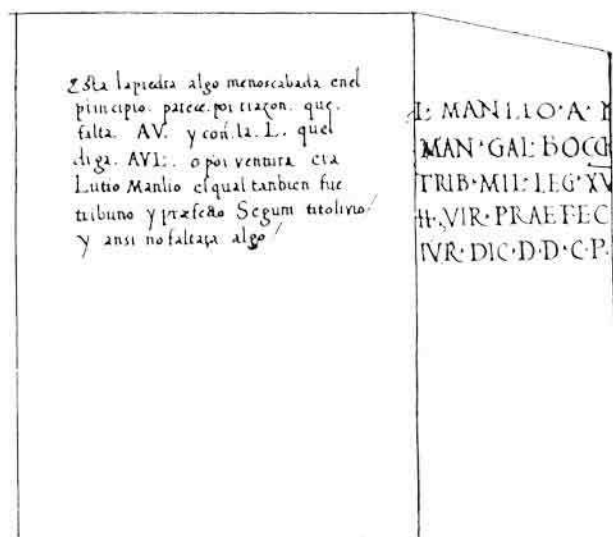 Esta lapiedra algo menoscabada enel
principio. parece. por razon. que.
falta. AV. y con. la. L. quel
diga. AVL:. o por ventura era
Lutio Manlio el qual tanbien fue
tribuno y præfecto Segun titolivio/
y ansi no faltara algo/
L: MANLIO·A·
MAN·GAL·BOCCH
TRIB·MIL·LEG·XV
II·VIR·PRAEFEC
IVR·DIC·D·D·C·P·